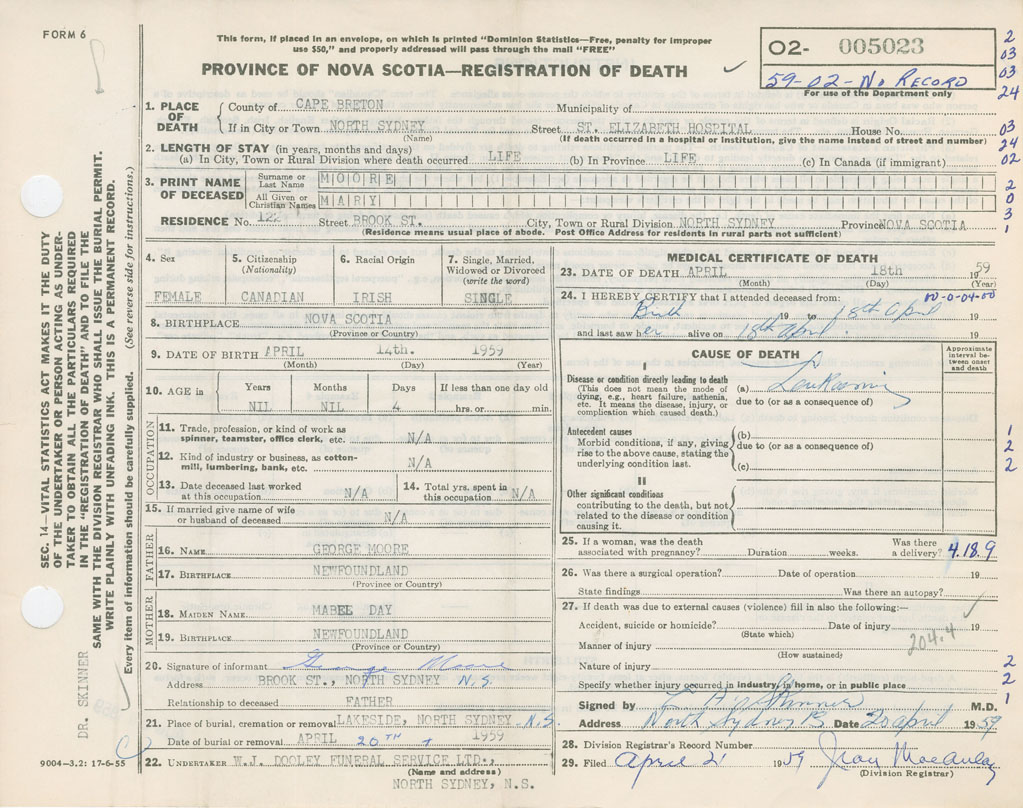 FORM 6
This form, if placed in an envelope, on which is printed "Dominion Statistics—Free, penalty for improper
use $50," and properly addressed will pass through the mail "FREE"
PROVINCE OF NOVA SCOTIA—REGISTRATION OF DEATH
02- 005023
59-02-No Record
For use of the Department only
2
03
03
24
1. PLACE OF DEATH
County of CAPE BRETON Municipality of
If in City or Town NORTH SYDNEY Street ST. ELIZABETH HOSPITAL House No.
(Name) (If death occurred in a hospital or institution, give the name instead of street and number)
03
24
02
2. LENGTH OF STAY (in years, months and days)
(a) In City, Town or Rural Division where death occurred LIFE (b) In Province LIFE (c) In Canada (if immigrant)
3. PRINT NAME OF DECEASED
Surname or Last Name MOORE
All Given or Christian Names MARY
2
0
3
1
RESIDENCE No. 122 Street BROOK ST. City, Town or Rural Division NORTH SYDNEY Province NOVA SCOTIA
(Residence means usual place of abode. Post Office Address for residents in rural parts not sufficient)
4. Sex
FEMALE
5. Citizenship
(Nationality)
CANADIAN
6. Racial Origin
IRISH
7. Single, Married, Widowed or Divorced
(write the word)
SINGLE
8. BIRTHPLACE NOVA SCOTIA
(Province or Country)
9. DATE OF BIRTH APRIL 14th. 1959
(Month) (Day) (Year)
10. AGE in
Years Months Days If less than one day old
NIL NIL 4 hrs. or min.
OCCUPATION
11. Trade, profession, or kind of work as
spinner, teamster, office clerk, etc. N/A
12. Kind of industry or business, as cotton-
mill, lumbering, bank, etc. N/A
13. Date deceased last worked
at this occupation N/A
14. Total yrs. spent in
this occupation N/A
15. If married give name of wife
or husband of deceased N/A
FATHER
16. NAME GEORGE MOORE
17. BIRTHPLACE NEWFOUNDLAND
(Province or Country)
MOTHER
18. MAIDEN NAME MABEL DAY
19. BIRTHPLACE NEWFOUNDLAND
(Province or Country)
20. Signature of informant George Moore
Address BROOK ST., NORTH SYDNEY N.S.
Relationship to deceased FATHER
21. Place of burial, cremation or removal LAKESIDE, NORTH SYDNEY N.S.
Date of burial or removal APRIL 20TH 1959
22. UNDERTAKER W.J. DOOLEY FUNERAL SERVICE LTD.,
(Name and address)
NORTH SYDNEY, N.S.
MEDICAL CERTIFICATE OF DEATH
23. DATE OF DEATH APRIL 18th 1959
(Month) (Day) (Year)
24. I HEREBY CERTIFY that I attended deceased from:
00-0-04-00
Birth 19 to 18th April 19
and last saw her alive on 18th April. 19
CAUSE OF DEATH
Approximate interval between onset and death
I
Disease or condition directly leading to death
(This does not mean the mode of
dying, e.g., heart failure, asthenia,
etc. It means the disease, injury, or
complication which caused death.)
(a)
due to (or as a consequence of)
Antecedent causes
Morbid conditions, if any, giving
rise to the above cause, stating the
underlying condition last.
(b)
due to (or as a consequence of)
(c)
1
2
2
II
Other significant conditions
contributing to the death, but not
related to the disease or condition
causing it.
25. If a woman, was the death
associated with pregnancy? Duration weeks. Was there
a delivery? 4.18.9
26. Was there a surgical operation? Date of operation 19
State findings Was there an autopsy?
27. If death was due to external causes (violence) fill in also the following:—
Accident, suicide or homicide? Date of injury 19
(State which)
204.4
Manner of injury
(How sustained)
Nature of injury
Specify whether injury occurred in industry, in home, or in public place
2
2
1
Signed by Skinner M.D.
Address North Sydney Date 20 April 1959
28. Division Registrar's Record Number
29. Filed April 21 1959 Jean MacAulay
(Division Registrar)
SEC. 14—VITAL STATISTICS ACT MAKES IT THE DUTY
OF THE UNDERTAKER OR PERSON ACTING AS UNDER-
TAKER TO OBTAIN ALL THE PARTICULARS REQUIRED
IN THE "REGISTRATION OF DEATH" AND TO FILE THE
SAME WITH THE DIVISION REGISTRAR WHO SHALL ISSUE THE BURIAL PERMIT.
WRITE PLAINLY WITH UNFADING INK. THIS IS A PERMANENT RECORD.
Every item of information should be carefully supplied. (See reverse side for instructions.)
DR. SKINNER
9004-3.2: 17-6-55